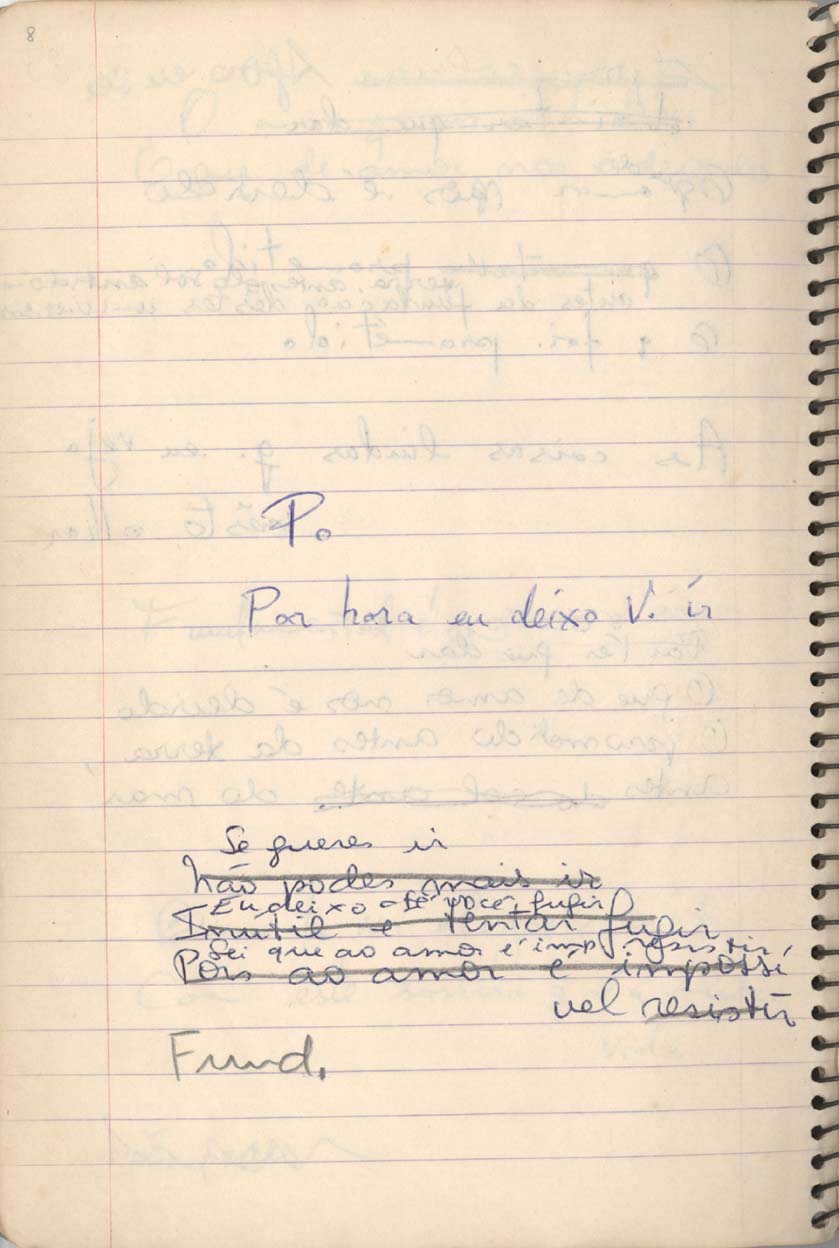 8
P.
Por hora eu deixo V. ir
Se queres ir
Não podes mais ir
Eu deixo até você fugir
Inutil é tentar fugir
Sei que ao amor é imp resistir
Pois ao amor é impossí
vel resistir
Fund.